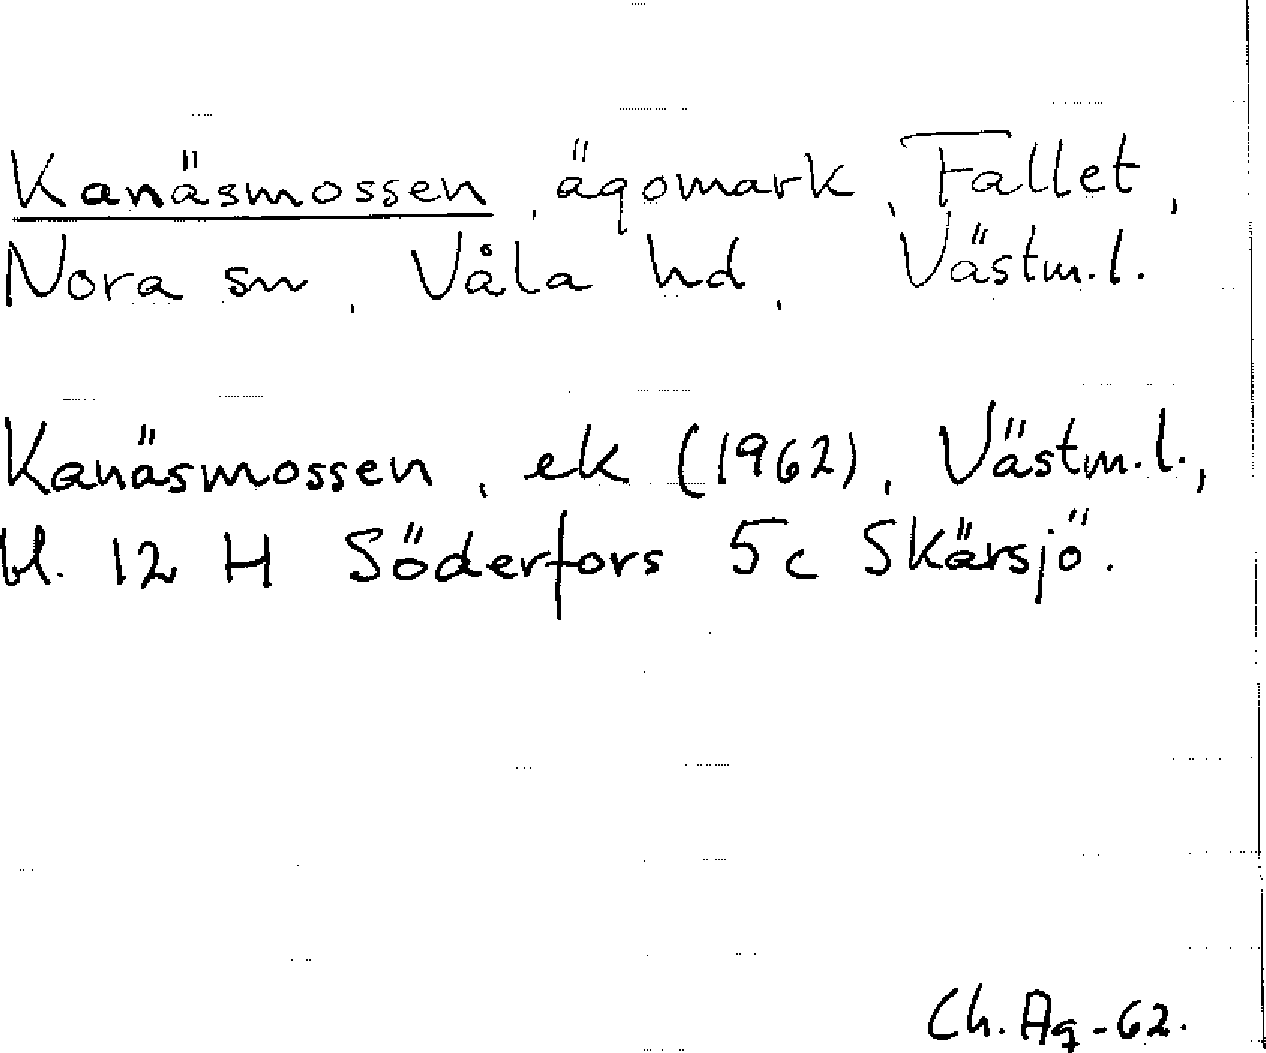 Kanäsmossen, ägomark, Fallet,
Nora sn, Våla hd, Västm.l.
Kanäsmossen, ek (1962), Västm.l.,
bl. 12 H Söderfors 5c Skärsjö.
Ch. Ag -62.